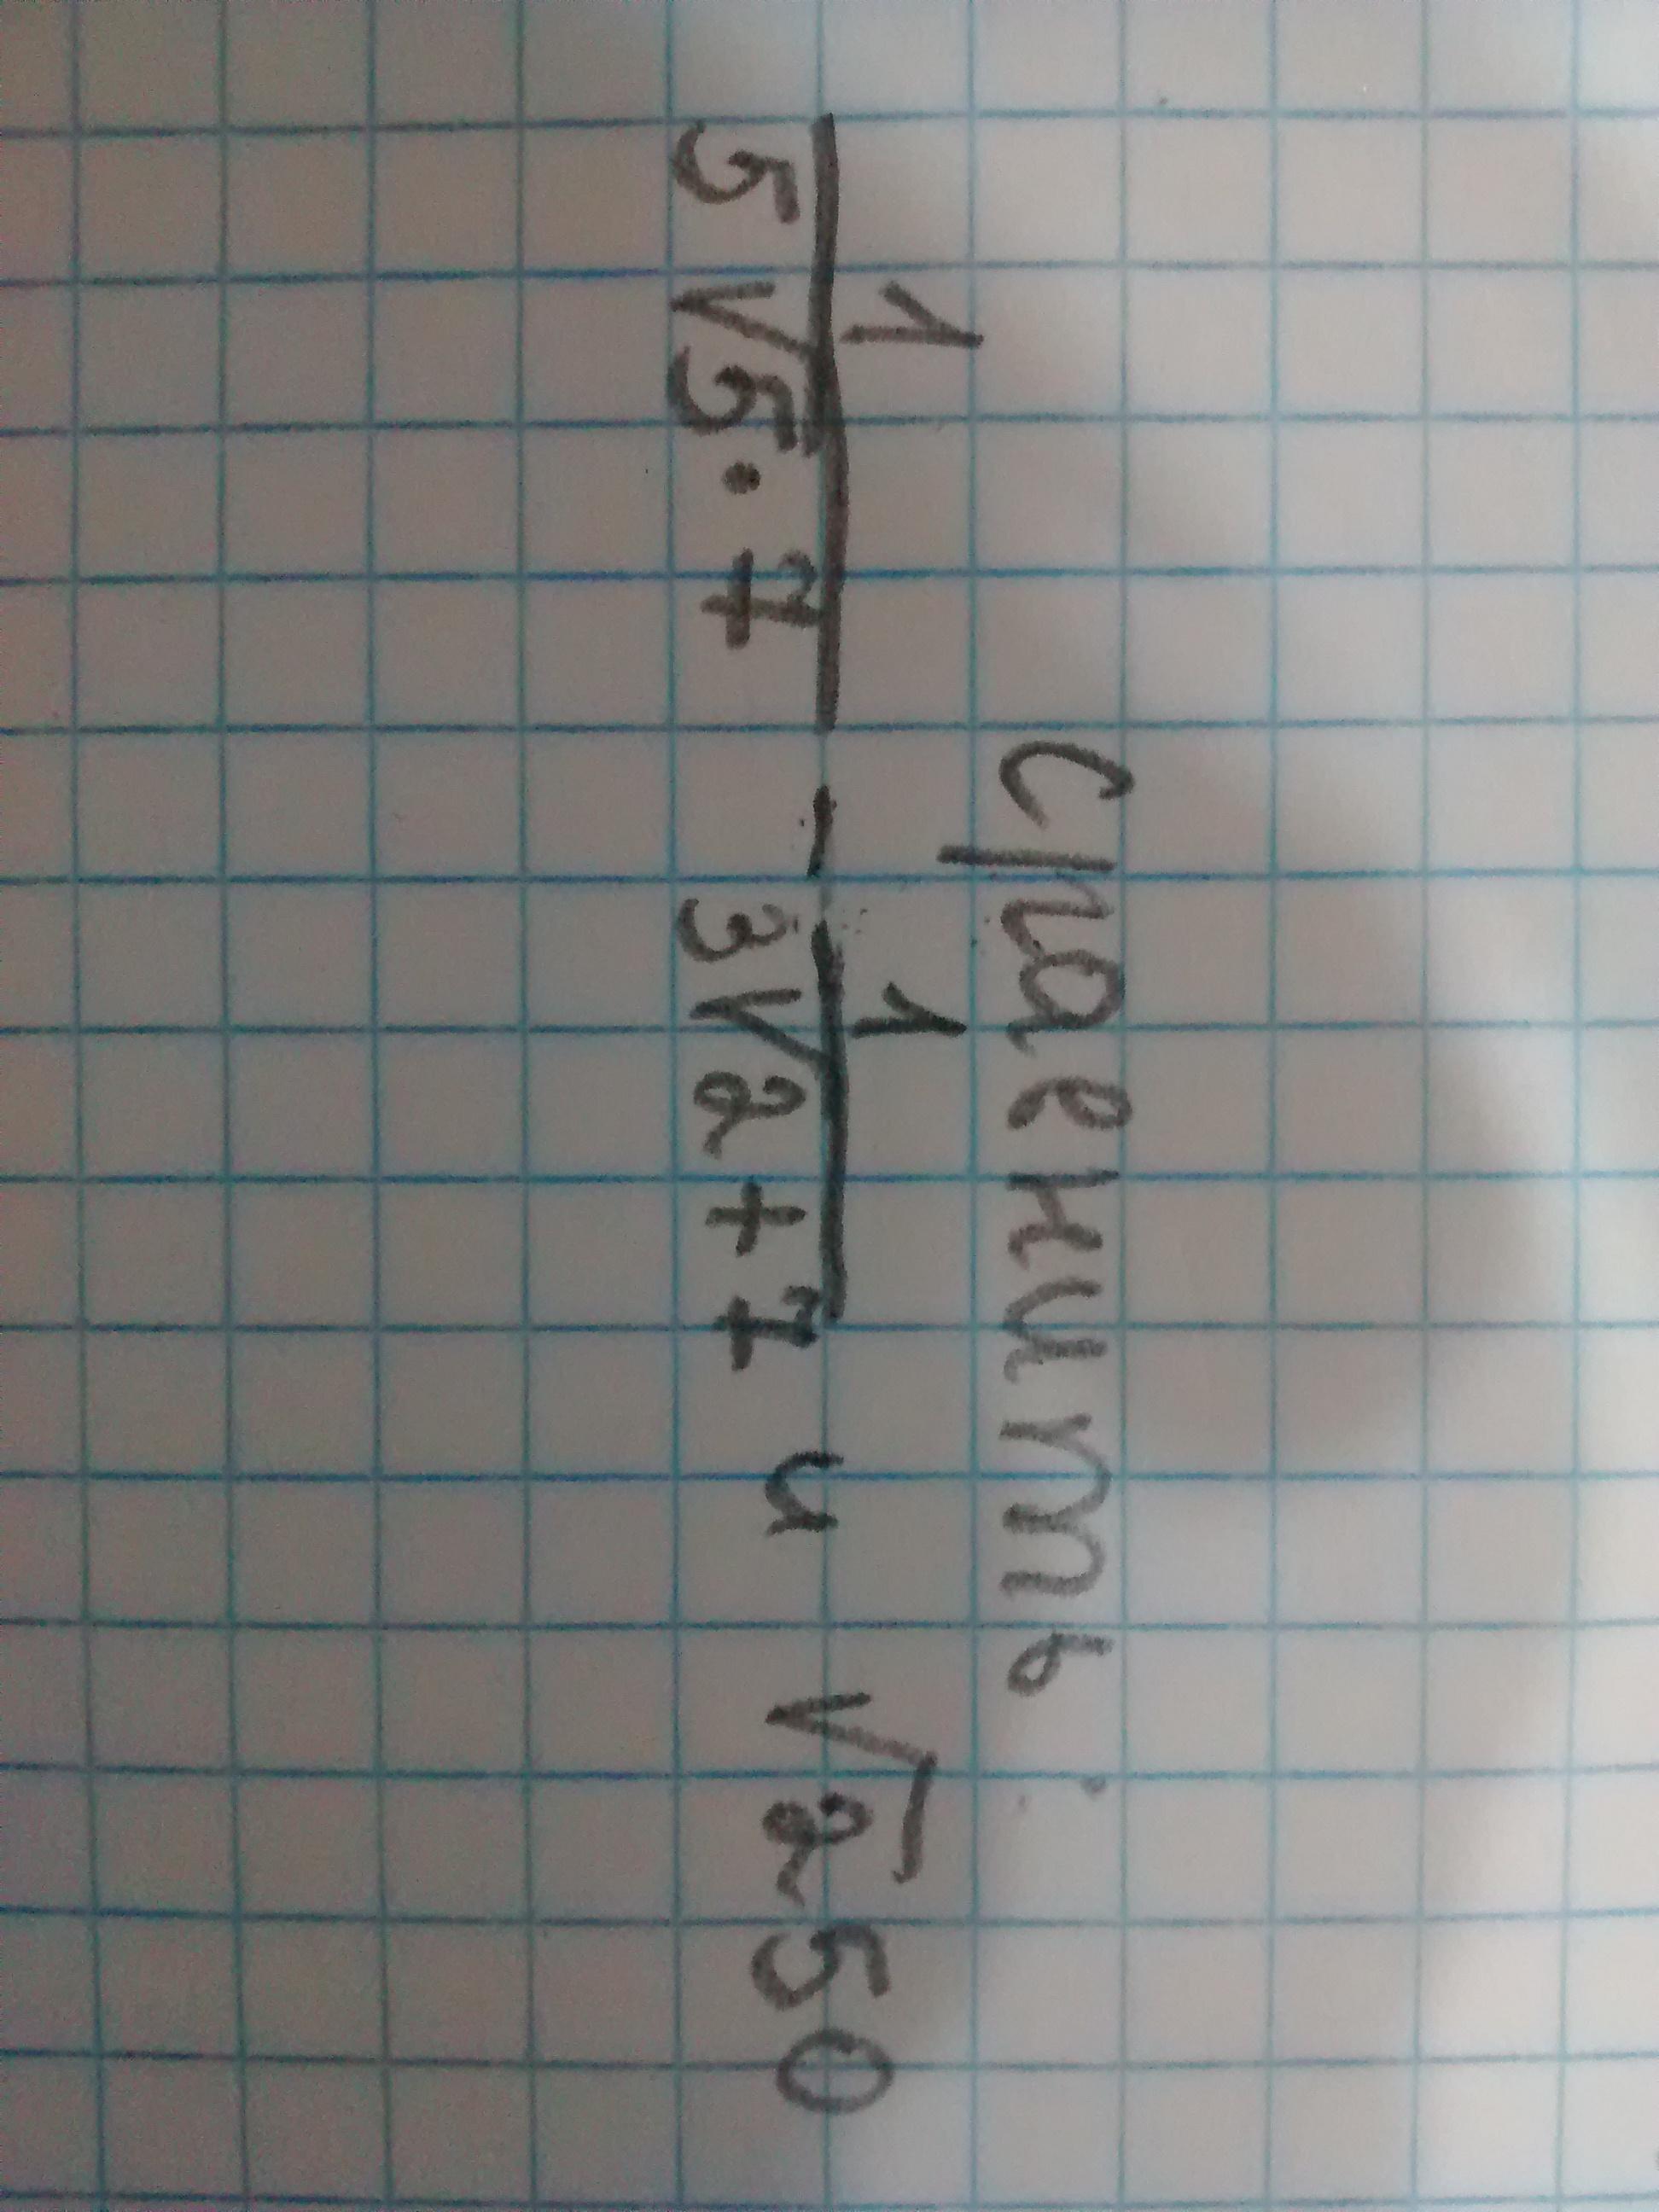 Сравнить:
1/(5√5·7) - 1/(3√2+7) и √250